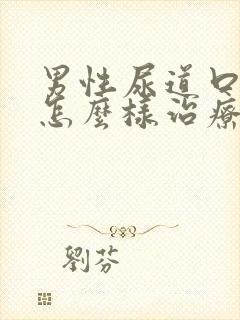 男性尿道口
怎麼樣治療
劉芬